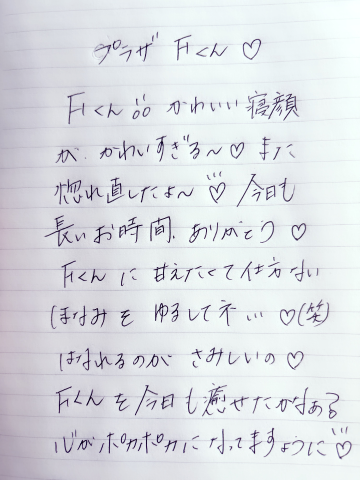 プラザ Fくん ♡
Fくん かわいい寝顔
が かわいすぎる〜♡ また
惚れ直したよ〜♡ 今日も
長いお時間、ありがとう ♡
Fくん に 甘えたくて仕方ない
ほなみを ゆるしてネ… ♡(笑)
はなれるのが さみしいの ♡
Fくん を 今日も癒せたかなぁ
心がポカポカに なってますように♡